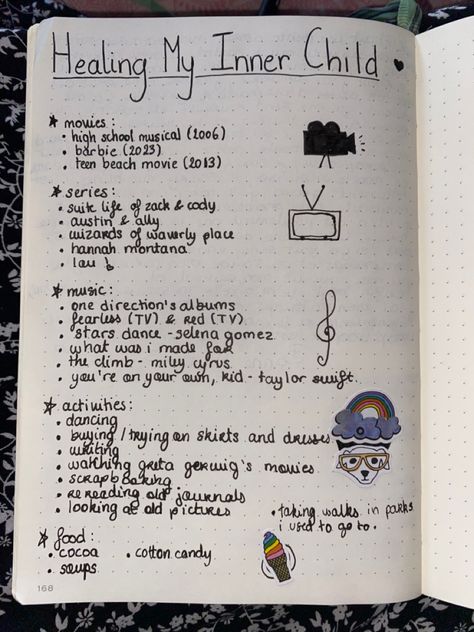 Healing My Inner Child
movies :
• high school musical (2006)
• barbie (2023)
• teen beach movie (2013)
series :
• suite life of zack & cody
• austin & ally
• wizards of waverly place
• hannah montana
• lou !
music :
• one direction's albums
• fearless (TV) & red (TV)
• stars dance - selena gomez
• what was i made for
• the climb - miley cyrus
• you're on your own, kid - taylor swift.
activities :
• dancing
• buying / trying on skirts and dresses
• writing
• watching greta gerwig's movies
• scrapbooking
• rereading old journals
• looking at old pictures
• taking walks in parks
i used to go to.
food :
• cocoa • cotton candy
• soups
168